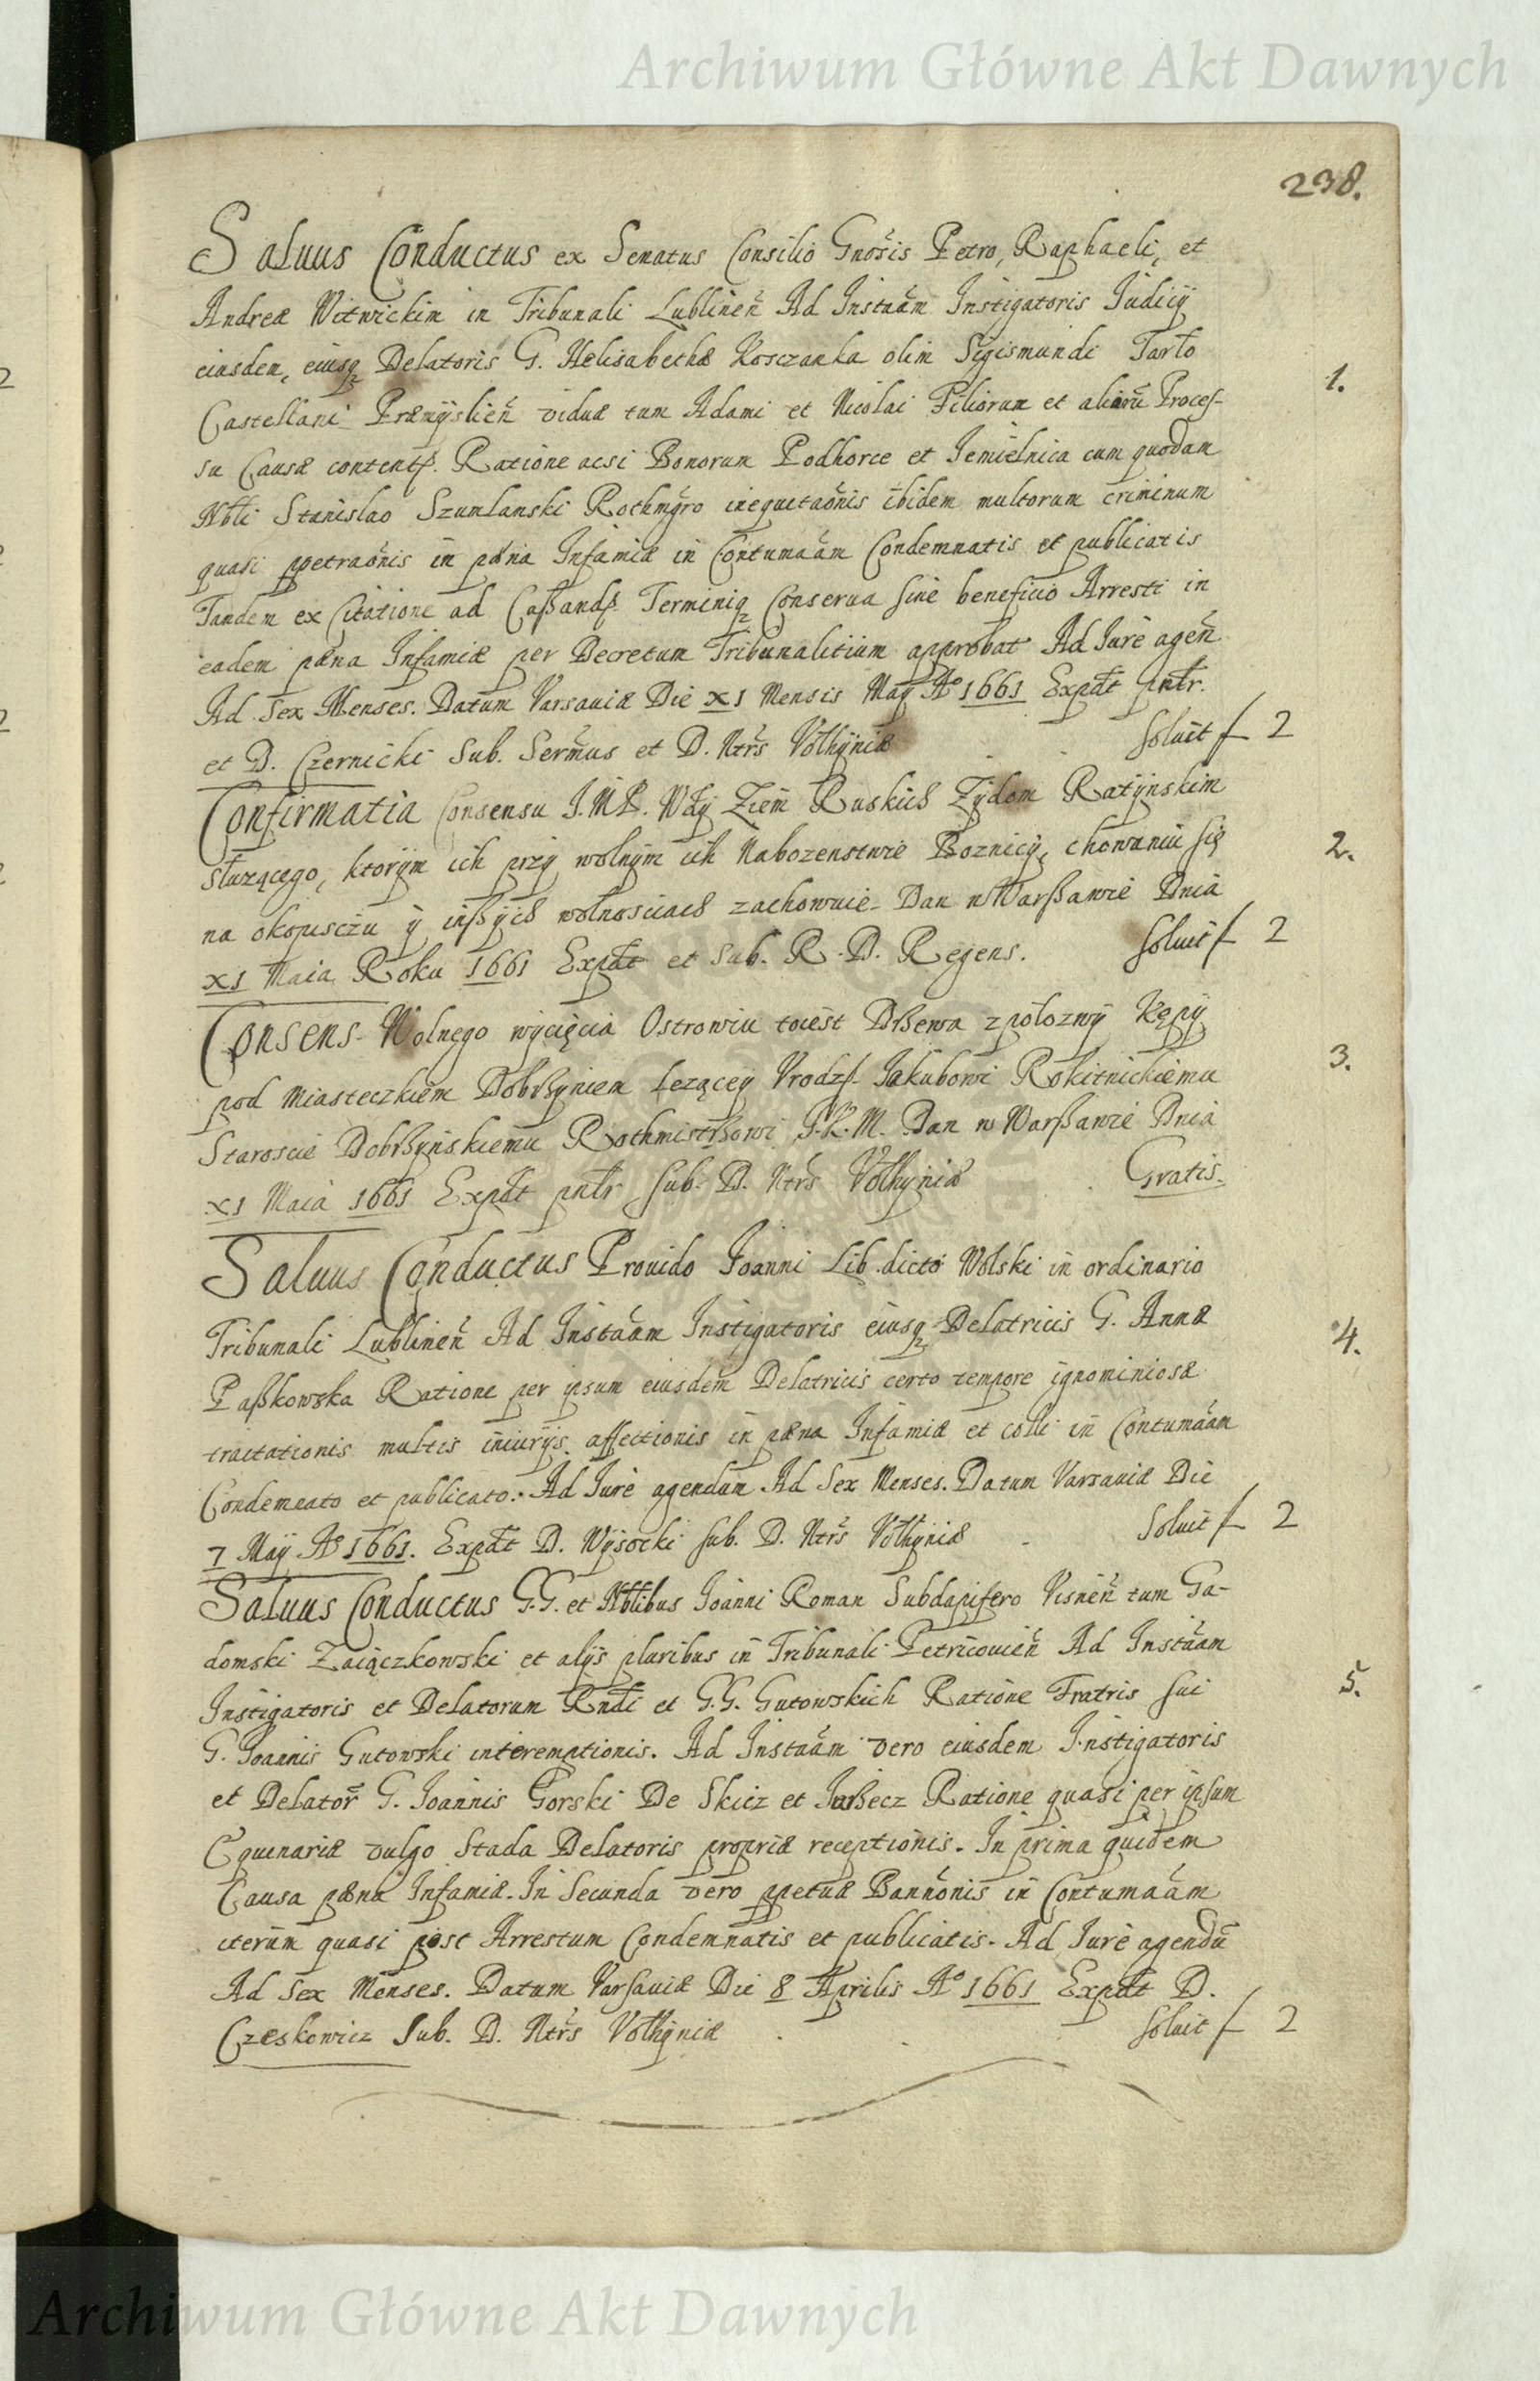 Archiwum Główne Akt Dawnych
238.
Saluus Conductus ex Senatus Consilio Gnosis Petro, Raphaeli, et
Andreæ Witwickim in Tribunali Lublineñ Ad Instaãm Instigatoris Iudicÿ
eiusdem, eiusq Delatoris G. Helisabethæ Kosczanka olim Sigismundi Tarło
1.
Castellani Præmÿslieñ viduæ tum Adami et Nicolai Filiorum et aliorũ Proces-
su Causæ content. Ratione acsi Bonorum Podhorce et Jemielnica cum quodam
Nbli Stanislao Szumlanski Rothmgro inequitaõnis ibidem multorum criminum
quasi ppetraõnis in pæna Infamiæ in Contumaãm Condemnatis et publicatis
Tandem ex Citatione ad Cassand. Terminiq Conserua sine beneficio Arresti in
eadem pæna Infamiæ per Decretum Tribunalitium approbat Ad Iure ageñ
Ad Sex Menses. Datum Varsauiæ Die XI Mensis Maÿ Aº 1661 Expdt pntr.
et D. Czernicki Sub. Sermus et D. Ntrs Volhÿniæ soluit f 2
Confirmatia Consensu J.M.P. Wdÿ Ziem Ruskich Zÿdom Ratÿnskim
służącego, ktorÿm ich przÿ wolnÿm ich Nabozenstwie Boznicÿ, chowaniu się
2.
na okopisczu ÿ inßÿch wolnosciach zachowuie. Dan w Warßawie Dnia
XI Maia Roku 1661 Expdt et Sub. R. D. Regens. soluit f 2
Consens Wolnego wÿcięcia Ostrowiu toiest Drßewa z połozwÿ Kępÿ
3.
pod Miasteczkiem Dobrßyniem lezącey Vrodz. Jakubowi Rokitnickiemu
Staroscie Dobrßyńskiemu Rothmistrßowi J.K.M. Dan w Warßawie Dnia
XI Maia 1661 Expdt pntr Sub. D. Ntrs Volhyniæ Gratis.
Saluus Conductus Prouido Joanni Lib. dicto Wolski in ordinario
Tribunali Lublineñ Ad Instaãm Instigatoris eiusq Delatricis G. Annæ
4.
Paßkowska Ratione per ipsum eiusdem Delatricis certo tempore ignominiosæ
tractationis multis iniurÿs affectionis in pæna Infamiæ et colli in Contumaãm
Condemnato et publicato. Ad Iure agendum Ad Sex Menses. Datum Varsauiæ Die
7 Maÿ Aº 1661. Expdt D. Wÿsocki sub. D. Ntrs Volhyniæ Soluit f 2
Saluus Conductus G.G. et Nblibus Joanni Roman Subdapifero Visneñ tum Ga-
domski Zaiączkowski et alÿs pluribus in Tribunali Petricouieñ Ad Instaãm
5.
Instigatoris et Delatorum Rndi et G.G. Gutowskich Ratione Fratris sui
G. Joannis Gutowski interemptionis. Ad Instaãm vero eiusdem Instigatoris
et Delator G. Joannis Gorski De Skicz et Ratione quasi per ipsum
Equinariæ vulgo Stada Delatoris propriæ receptionis. In prima quidem
Causa pæna Infamiæ. In Secunda vero ppetuæ Bannõnis in Contumaãm
iterum quasi post Arrestum Condemnatis et publicatis. Ad Iure agendũ
Ad Sex Menses. Datum Varsauiæ Die 8 Aprilis Aº 1661 Expdt D.
Czeskowicz Sub. D. Ntrs Volhyniæ soluit f 2
Archiwum Główne Akt Dawnych